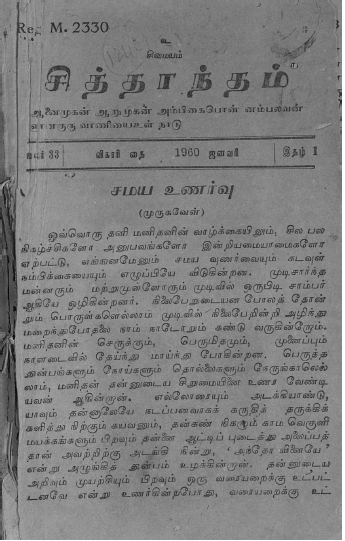 Reg. M. 2330
உ
சிவமயம்
சித்தாந்தம்
ஆனைமுகன் ஆறுமுகன் அம்பிகைபொன் னம்பலவன்
ஞானகுரு வாணியைஉள் நாடு
மலர் 33 விகாரி தை 1960 ஜனவரி இதழ் 1
சமய உணர்வு
(முருகவேள்)
ஒவ்வொரு தனி மனிதனின் வாழ்க்கையிலும், சில பல
நிகழ்ச்சிகளோ அனுபவங்களோ இன்றியமையாமைகளோ
ஏற்பட்டு, எங்ஙனமேனும் சமய வுணர்வையும் கடவுள்
நம்பிக்கையையும் எழுப்பியே விடுகின்றன. முடிசார்ந்த
மன்னரும் மற்றுமுள்ளோரும் முடிவில் ஒருபிடி சாம்பர்
ஆகியே ஒழிகின்றனர். நிலைபேறுடையன போலத் தோன்
றும் பொருள்களெல்லாம் முடிவில் நிலைபேறின்றி அழிந்து
மறைந்துபோதலை நாம் நாடோறும் கண்டு வருகின்றோம்.
மனிதனின் செருக்கும், பெருமிதமும், முனைப்பும்
நாளடைவில் தேய்ந்து மாய்ந்து போகின்றன. பெருத்த
துன்பங்களும் நோய்களும் தொல்லைகளும் நேருங்காலெல்
லாம், மனிதன் தன்னுடைய சிறுமையினை உணர வேண்டி
யவன் ஆகின்றான். எல்லோரையும் அடக்கியாண்டு,
யாவும் தன்னாலேயே நடப்பனவாகக் கருதித் தருக்கிக்
களித்து நிற்கும் கயவனும், தன்கண் நிகழும் காம வெகுளி
மயக்கங்களும் பிறவும் தன்னை ஆட்டிப் புடைத்து அலைப்பத்
தான் அவற்றிற்கு அடங்கி நின்று, ‘அந்தோ வினையே’
என்று அழுங்கித் துன்பம் உழக்கின்றான். தன்னுடைய
அறிவும் முயற்சியும் பிறவும் ஒரு வரையறைக்கு உட்பட்
டனவே என்று உணர்கின்றபோது, வரையறைக்கு உட்